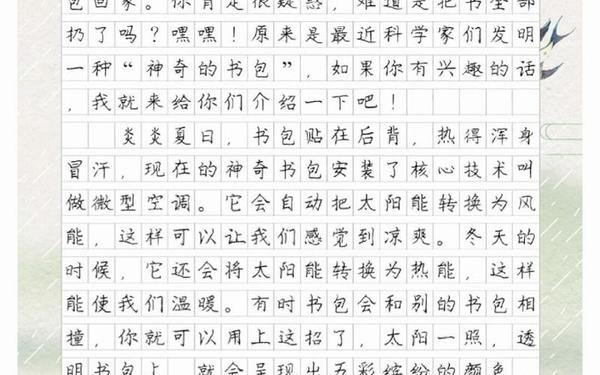 包回家。你肯定很疑惑,难道是把书全部
扔了吗?嘿嘿!原来是最近科学家们发明
一种“神奇的书包”,如果你有兴趣的话
,我就来给你们介绍一下吧!
炎炎夏日,书包贴在后背,热得浑身
冒汗,现在的神奇书包安装了核心技术叫
做微型空调。它会自动把太阳能转换为风
能,这样可以让我们感觉到凉爽。冬天的
时候,它还会将太阳能转换为热能,这样
能使我们温暖。有时书包会和别的书包相
撞,你就可以用上这招了,太阳一照,透
明书包上,就会呈现出五彩缤纷的颜色